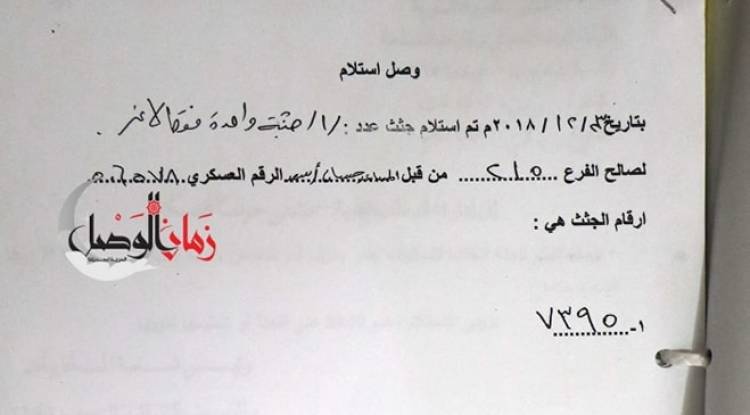 وصل استلام
بتاريخ ٢٣/ ١٢/ ٢٠١٨م تم استلام جثث عدد : /١/ جثة واحدة فقط لا غير .
لصالح الفرع ٢١٥ من قبل المساعد الرقم العسكري
ارقام الجثث هي :
زمان الوصل
١- ٧٣٩٥